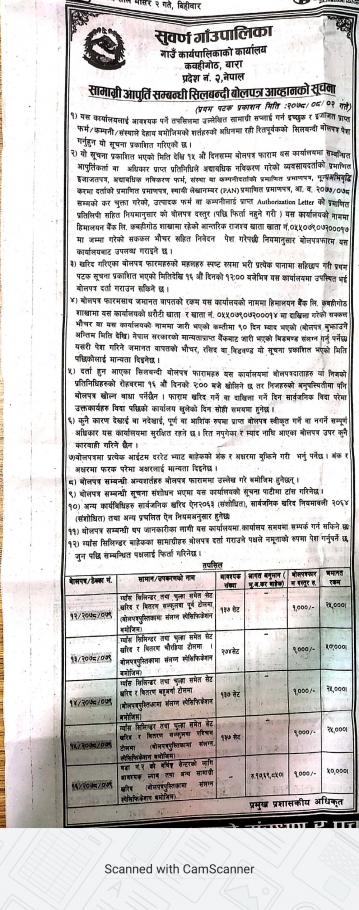 मंसिर २ गते, बिहीबार
सुवर्ण गाउँपालिका
गाउँ कार्यपालिकाको कार्यालय
कचहीगोठ, बारा
प्रदेश नं. २, नेपाल
सामाग्री आपुर्ति सम्बन्धी सिलबन्दी बोलपत्र आव्हानको सूचना
(प्रथम पटक प्रकाशन मिति :२०७८/०८/०२ गते)
१) यस कार्यालयलाई आवश्यक पर्ने तपसिलमा उल्लेखित सामाग्री सप्लाई गर्न इच्छुक र इजाजत प्राप्त
फर्म/कम्पनी/संस्थाले देहाय बमोजिमको शर्तहरुको अधिनमा रही रितपूर्वकको सिलबन्दी बोलपत्र पेश
गर्नुहुन यो सूचना प्रकाशित गरिएको छ ।
२) यो सूचना प्रकाशित भएको मिति देखि १५ औं दिनसम्म बोलपत्र फाराम यस कार्यालयमा सम्बन्धित
आपुर्तिकर्ता वा अधिकार प्राप्त प्रतिनिधिले अद्यावधिक नविकरण गरेको व्यवसायदर्ताको प्रमाणपत्र,
इजाजतपत्र, अद्यावधिक नविकरण फर्म, संस्था वा कम्पनीदर्ताको प्रमाणित प्रमाणपत्र, मूल्यअभिवृद्धि
करमा दर्ताको प्रमाणित प्रमाणपत्र, स्थायी लेखानम्वर (PAN) प्रमाणित प्रमाणपत्र, आ. व. २०७७/०७८
सम्मको कर चुक्ता गरेको, उत्पादक फर्म वा कम्पनीलाई प्राप्त Authorization Letter को प्रमाणित
प्रतिलिपी सहित नियमानुसार को बोलपत्र दस्तुर (पछि फिर्ता नहुने गरी) । यस कार्यालयको नाममा
हिमालयन बैंक लि. कबहीगोठ शाखामा रहेको आन्तरिक राजश्व खाता खाता नं.
मा जम्मा गरेको सक्कल भौचर सहित निवेदन पेश गरेपछी नियमानुसार बोलपत्रफारम यस
कार्यालयबाट उपलब्ध गराइने छ ।
३) खरिद गरिएका बोलपत्र फारमहरुको महलहरु स्पष्ट रुपमा भरी प्रत्येक पानामा सहिछाप गरी प्रथम
पटक सूचना प्रकाशित भएको मितिदेखि १६ औं दिनको १२:०० बजेभित्र यस कार्यालयमा उपस्थित भई
बोलपत्र दर्ता गराउन सकिने छ ।
४) बोलपत्र फारमसाथ जमानत वापतको रकम यस कार्यालयको नाममा हिमालयन बैंक लि. कबहीगोठ
शाखामा यस कार्यालयको धरौटी खाता र खाता नं. मा दाखिला गरेको सक्कल
भौचर वा यस कार्यालयको नाममा जारी भएको कम्तीमा ९० दिन म्याद भएको (बोलपत्र बुझाउने
अन्तिम मिति देखि) नेपाल सरकारको मान्यताप्राप्त बैंकबाट जारी भएको बिडबण्ड संलग्न गर्नु पर्नेछ
यसरी पेश गरिने जमानत वापतको भौचर, रसिद वा बिडबण्ड यो सूचना प्रकाशित भएको मिति
पछिकोलाई मान्यता दिइनेछ ।
५) दर्ता हुन आएका सिलबन्दी बोलपत्र फारामहरु यस कार्यालयमा बोलपत्रदाताहरु वा निजको
प्रतिनिधिहरुको रोहबरमा १६ औं दिनको २:०० बजे खोलिने छ तर निजहरुको अनुपस्थितीमा पनि
बोलपत्र खोल्न बाधा पर्नेछैन । फाराम खरिद गर्ने वा दाखिला गर्ने दिन सार्वजनिक विदा परेमा
उक्तकार्यहरु विदा पछिको कार्यालय खुलेको दिन सोही समयमा हुनेछ ।
६) कुनै कारण देखाई वा नदेखाई, पूर्ण वा आंशिक रुपमा प्राप्त बोलपत्र स्वीकृत गर्ने वा नगर्ने सम्पूर्ण
अधिकार यस कार्यालयमा सुरक्षित रहने छ । रित नपुगेका र म्याद नाघि आएका बोलपत्र उपर कुनै
कारवाही गरिने छैन ।
७)बोलपत्रमा प्रत्येक आईटम दररेट भ्याट बाहेकको अंक र अक्षरमा बुझिने गरी भर्नु पर्नेछ । अंक र
अक्षरमा फरक परेमा अक्षरलाई मान्यता दिइनेछ ।
८) बोलपत्र सम्बन्धी अन्यशर्तहरु बोलपत्र फाराममा उल्लेख गरे बमोजिम हुनेछन् ।
९) बोलपत्र सम्बन्धी सूचना संशोधन भएमा यस कार्यालयको सूचना पाटीमा टाँस गरिनेछ ।
१०) अन्य कार्यविधिहरु सार्वजनिक खरिद ऐन२०६३ (संशोधित), सार्वजनिक खरिद नियमावली २०६४
(संशोधित) तथा अन्य प्रचलित ऐन नियमअनुसार हुनेछ।
११) बोलपत्र सम्बन्धी थप जानकारीको लागी यस कार्यालयमा कार्यालय समयमा सम्पर्क गर्न सकिने छ।
१२) ग्याँस सिलिन्डर बाहेकका सामाग्रीहरु बोलपत्र दर्ता गराउने पक्षले नमूनाको रुपमा पेश गर्नुपर्ने छ,
जुन पछि सम्बन्धित पक्षलाई फिर्ता गरिनेछ ।
तपसिल
बोलपत्र/ठेक्का नं. सामान/उपकरणको नाम आवश्यक संख्या लागत अनुमान (मु.अ.कर बाहेक) बोलपत्रफारम दस्तुर रु. जमानत रकम
१२/२०७८/०७९ ग्याँस सिलिन्डर तथा चुल्हा समेत सेट खरिद र वितरण पूर्व टोलमा, (बोलपत्रपुस्तिकामा संलग्न स्पेसिफिकेशन बमोजिम) १३० सेट १,०००/- २५,०००।
१३/२०७८/०७९ ग्याँस सिलिन्डर तथा चुल्हा समेत सेट खरिद र वितरण टोलमा (बोलपत्रपुस्तिकामा संलग्न स्पेसिफिकेशन बमोजिम) २७४सेट १,०००/- ५०,०००।
१४/२०७८/०७९ ग्याँस सिलिन्डर तथा चुल्हा समेत सेट खरिद र वितरण टोलमा (बोलपत्रपुस्तिकामा संलग्न स्पेसिफिकेशन बमोजिम) १३० सेट १,०००/- २५,०००।
१५/२०७८/०७९ ग्याँस सिलिन्डर तथा चुल्हा समेत सेट खरिद र वितरण पश्चिम टोलमा (बोलपत्रपुस्तिकामा संलग्न स्पेसिफिकेशन बमोजिम) १३० सेट १,०००/- २५,०००।
१६/२०७८/०७९ वडा नं.२ को बर्थिङ्ग सेन्टरको लागि आवश्यक ल्याब तथा अन्य सामाग्री खरिद (बोलपत्रपुस्तिकामा संलग्न स्पेसिफिकेशन बमोजिम) - १,०००/- ५०,०००।
प्रमुख प्रशासकीय अधिकृत
Scanned with CamScanner